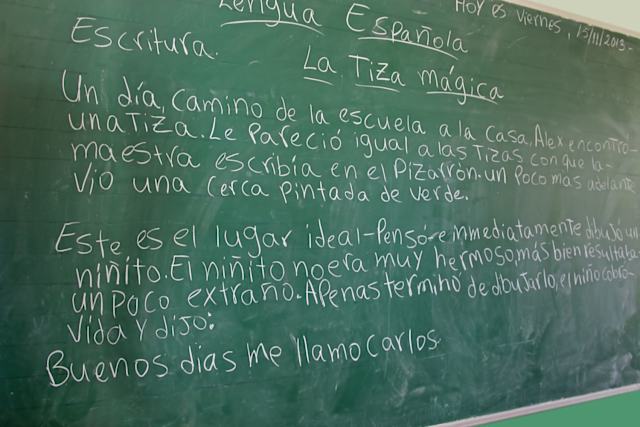 Lengua Española
Hoy es Viernes, 15/11/2013.
Escritura.
La Tiza mágica
Un día, camino de la escuela a la casa, Alex encontro-
una Tiza. Le pareció igual a las Tizas con que la-
maestra escribía en el Pizarrón. un poco mas adelante
Vio una cerca pintada de verde.
Este es el lugar ideal-Pensó-e inmediatamente dibujó un
niñito. El niñito no era muy hermoso, más bien resultaba
un poco extraño. Apenas terminó de dibujarlo, el niño cobró-
vida y dijo:
Buenos dias me llamo Carlos.